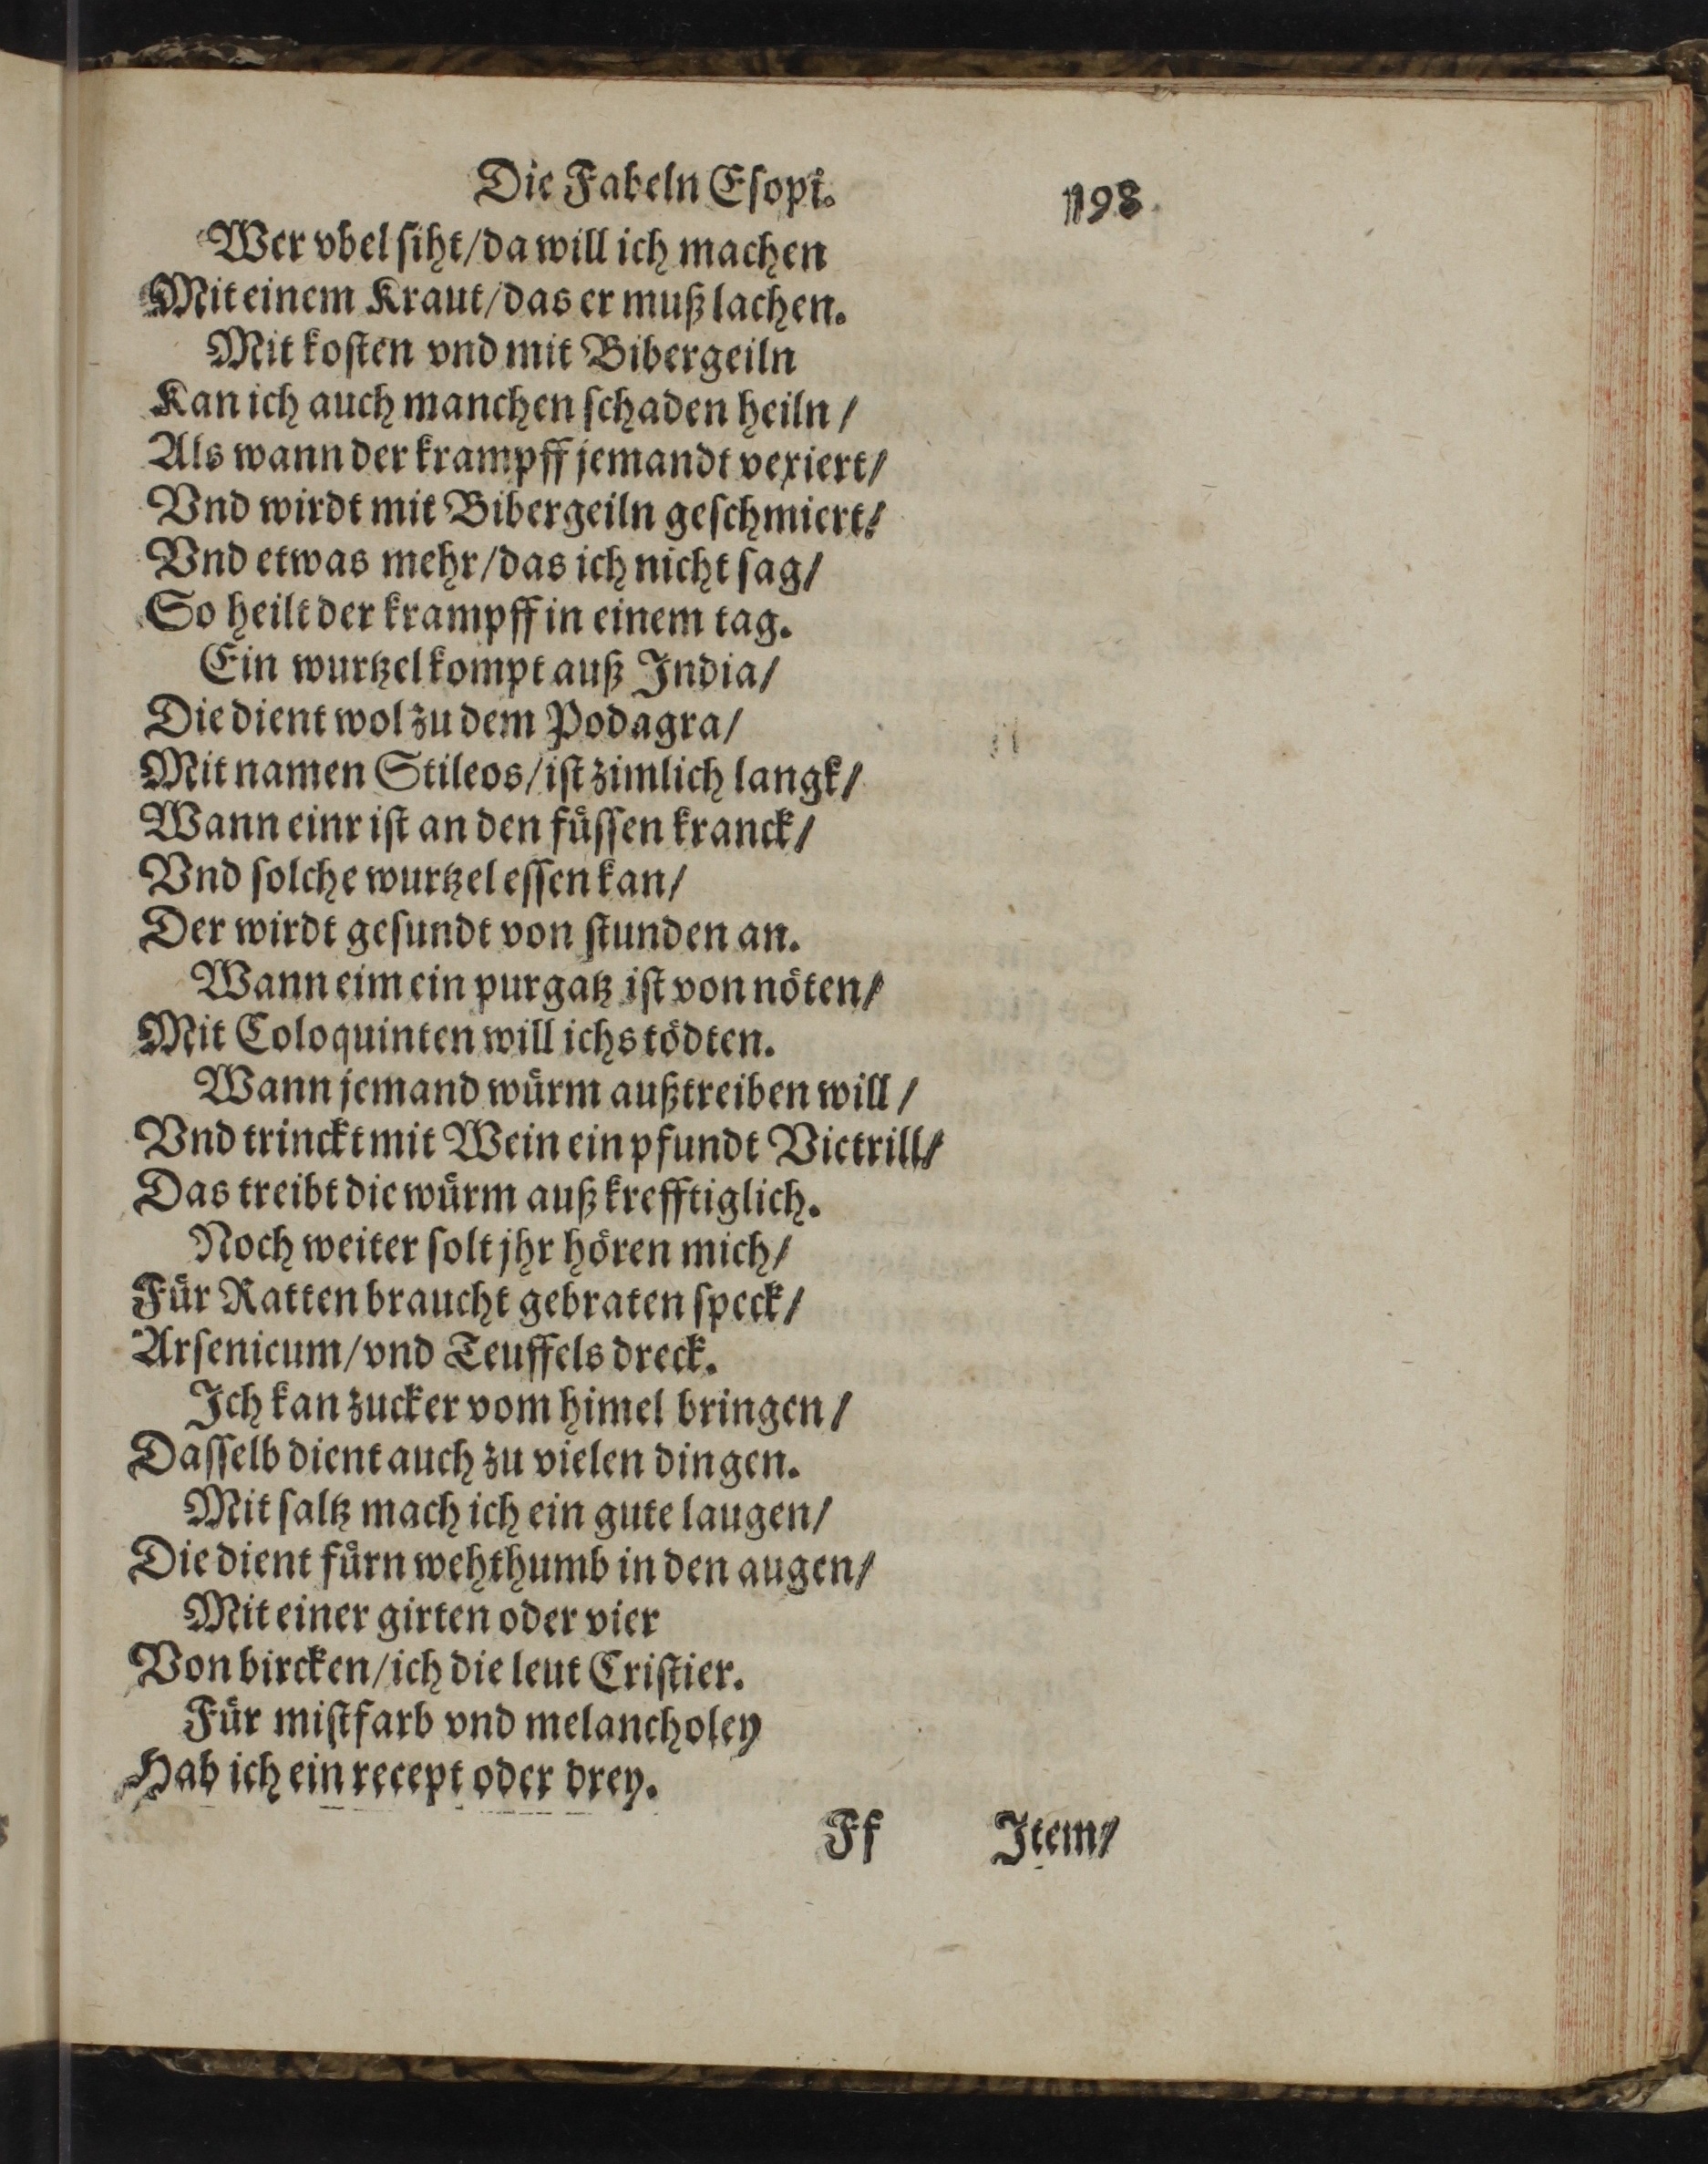 Die Fabeln Esopi. 198
Wer vbel siht/da will ich machen
Mit einem Kraut/das er muß lachen.
Mit kosten vnd mit Bibergeiln
Kan ich auch manchen schaden heiln/
Als wann der krampff jemandt vexiert/
Vnd wirdt mit Bibergeiln geschmiert/
Vnd etwas mehr/das ich nicht sag/
So heilt der krampff in einem tag.
Ein wurtzel kompt auß India/
Die dient wol zu dem Podagra/
Mit namen Stileos/ist zimlich langk/
Wann einr ist an den füssen kranck/
Vnd solche wurtzel essen kan/
Der wirdt gesundt von stunden an.
Wann eim ein purgatz ist von nöten/
Mit Coloquinten will ichs tödten.
Wann jemand würm außtreiben will/
Vnd trinckt mit Wein ein pfundt Victrill/
Das treibt die würm auß krefftiglich.
Noch weiter solt jhr hören mich/
Für Ratten braucht gebraten speck/
Arsenicum/vnd Teuffels dreck.
Ich kan zucker vom himel bringen/
Dasselb dient auch zu vielen dingen.
Mit saltz mach ich ein gute laugen/
Die dient fürn wehthumb in den augen/
Mit einer girten oder vier
Von bircken/ich die leut Cristier.
Für mistfarb vnd melancholey
Hab ich ein recept oder drey.
Ff Item/